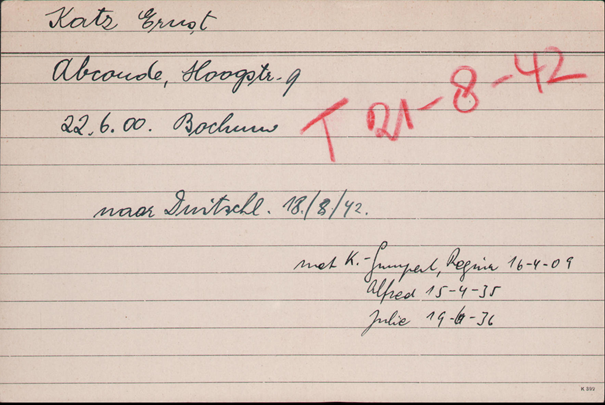 Katz Ernst
Abcoude, Hoogstr. 9
22.6.00. Bochum
T 21-8-42
naar Duitschl. 18/8/42.
met K.-Gumpert, Regina 16-4-09
Alfred 15-4-35
Julie 19- -36
K 393